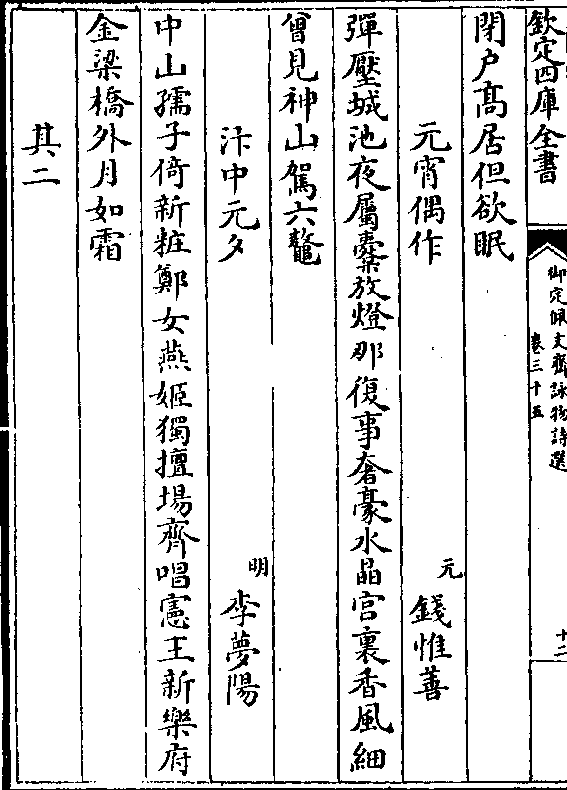 欽定四庫全書
御定佩文齋詠物詩選
卷三十五
十二
閉户髙居但欲眠
元宵偶作
元 錢惟善
彈壓城池夜屬櫜放燈那復事奢豪水晶宫裏香風細
曾見神山駕六鼇
汴中元夕
明 李夢陽
中山孺子倚新粧鄭女燕姬獨擅場齊唱憲王新樂府
金梁橋外月如霜
其二